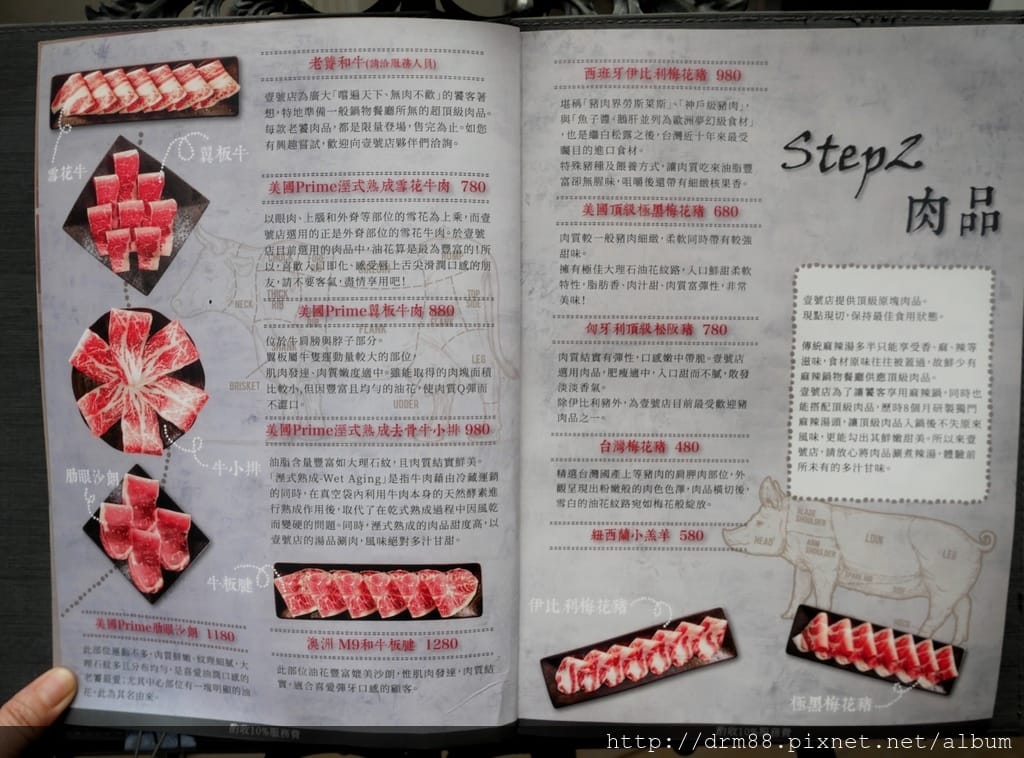 老饕和牛(請洽服務人員)
壹號店為廣大「嚐遍天下、無肉不歡」的饕客著
想,特地準備一般鍋物餐廳所無的超頂級肉品。
每款老饕肉品,都是限量登場,售完為止。如您
有興趣嘗試,歡迎向壹號店夥伴們洽詢。
雪花牛
翼板牛
美國Prime溼式熟成雪花牛肉 780
以眼肉、上腦和外脊等部位的雪花為上乘,而壹
號店選用的正是外脊部位的雪花牛肉。於壹號
店目前選用的肉品中,油花算是最為豐富的!所
以,喜歡入口即化、感受唇上舌尖滑潤口感的朋
友,請不要客氣,盡情享用吧!
美國Prime翼板牛肉 880
位於牛肩膀與脖子部分。
翼板屬牛隻運動量較大的部位,
肌肉發達、肉質嫩度適中。雖能取得的肉塊面積
比較小,但因豐富且均勻的油花,使肉質Q彈而
不澀口。
美國Prime溼式熟成去骨牛小排 980
油脂含量豐富如大理石紋,且肉質結實鮮美。
「溼式熟成-Wet Aging」是指牛肉藉由冷藏運銷
的同時,在真空袋內利用牛肉本身的天然酵素進
行熟成作用後,取代了在乾式熟成過程中因風乾
而變硬的問題。同時,溼式熟成的肉品甜度高,以
壹號店的湯品涮肉,風味絕對多汁甘甜。
牛小排
肋眼沙朗
牛板腱
美國Prime肋眼沙朗 1180
此部位運動不多,肉質鮮嫩、紋理細膩,大
理石紋多且分布均勻,是喜愛油潤口感的
老饕最愛;尤其中心部位有一塊明顯的油
花,此為其名由來。
澳洲 M9和牛板腱 1280
此部位油花豐富媲美沙朗,惟肌肉發達,肉質結
實,適合喜愛彈牙口感的顧客。
酌收10%服務費
NECK
THICK
RIB
SHANK
BRISKET
FLANK
UDDER
TOP
SIDE
LEG
西班牙伊比利梅花豬 980
堪稱「豬肉界勞斯萊斯」、「神戶級豬肉」,
與「魚子醬、鵝肝並列為歐洲夢幻級食材」
,也是繼白松露之後,台灣近十年來最受
矚目的進口食材。
特殊豬種及餵養方式,讓肉質吃來油脂豐
富卻無腥味,咀嚼後還帶有細緻核果香。
美國頂級極黑梅花豬 680
肉質較一般豬肉細緻,柔軟同時帶有較強
甜味。
擁有極佳大理石油花紋路,入口鮮甜柔軟
特性,脂肪香、肉汁甜、肉質富彈性,非常
美味!
匈牙利頂級松阪豬 780
肉質結實有彈性,口感嫩中帶脆。壹號店
選用肉品,肥瘦適中,入口甜而不膩,散發
淡淡香氣。
除伊比利豬外,為壹號店目前最受歡迎豬
肉品之一。
台灣梅花豬 480
精選台灣國產上等豬肉的肩胛肉部位,外
觀呈現出粉嫩般的肉色色澤,肉品橫切後,
雪白的油花紋路宛如梅花般綻放。
紐西蘭小羔羊 580
Step2
肉品
壹號店提供頂級原塊肉品。
現點現切,保持最佳食用狀態。
傳統麻辣湯多半只能享受香、麻、辣等
滋味,食材原味往往被蓋過,故鮮少有
麻辣鍋物餐廳供應頂級肉品。
壹號店為了讓饕客享用麻辣鍋,同時也
能搭配頂級肉品,歷時8個月研製獨門
麻辣湯頭,讓頂級肉品入鍋後不失原來
風味,更能勾出其鮮嫩甜美。所以來壹
號店,請放心將肉品涮煮辣湯、體驗前
所未有的多汁甘味。
HEAD
BLADE
SHOULDER
ARM
SHOULDER
LOIN
SPARE RIB
LEG
伊比利梅花豬
極黑梅花豬
http://drm88.pixnet.net/album